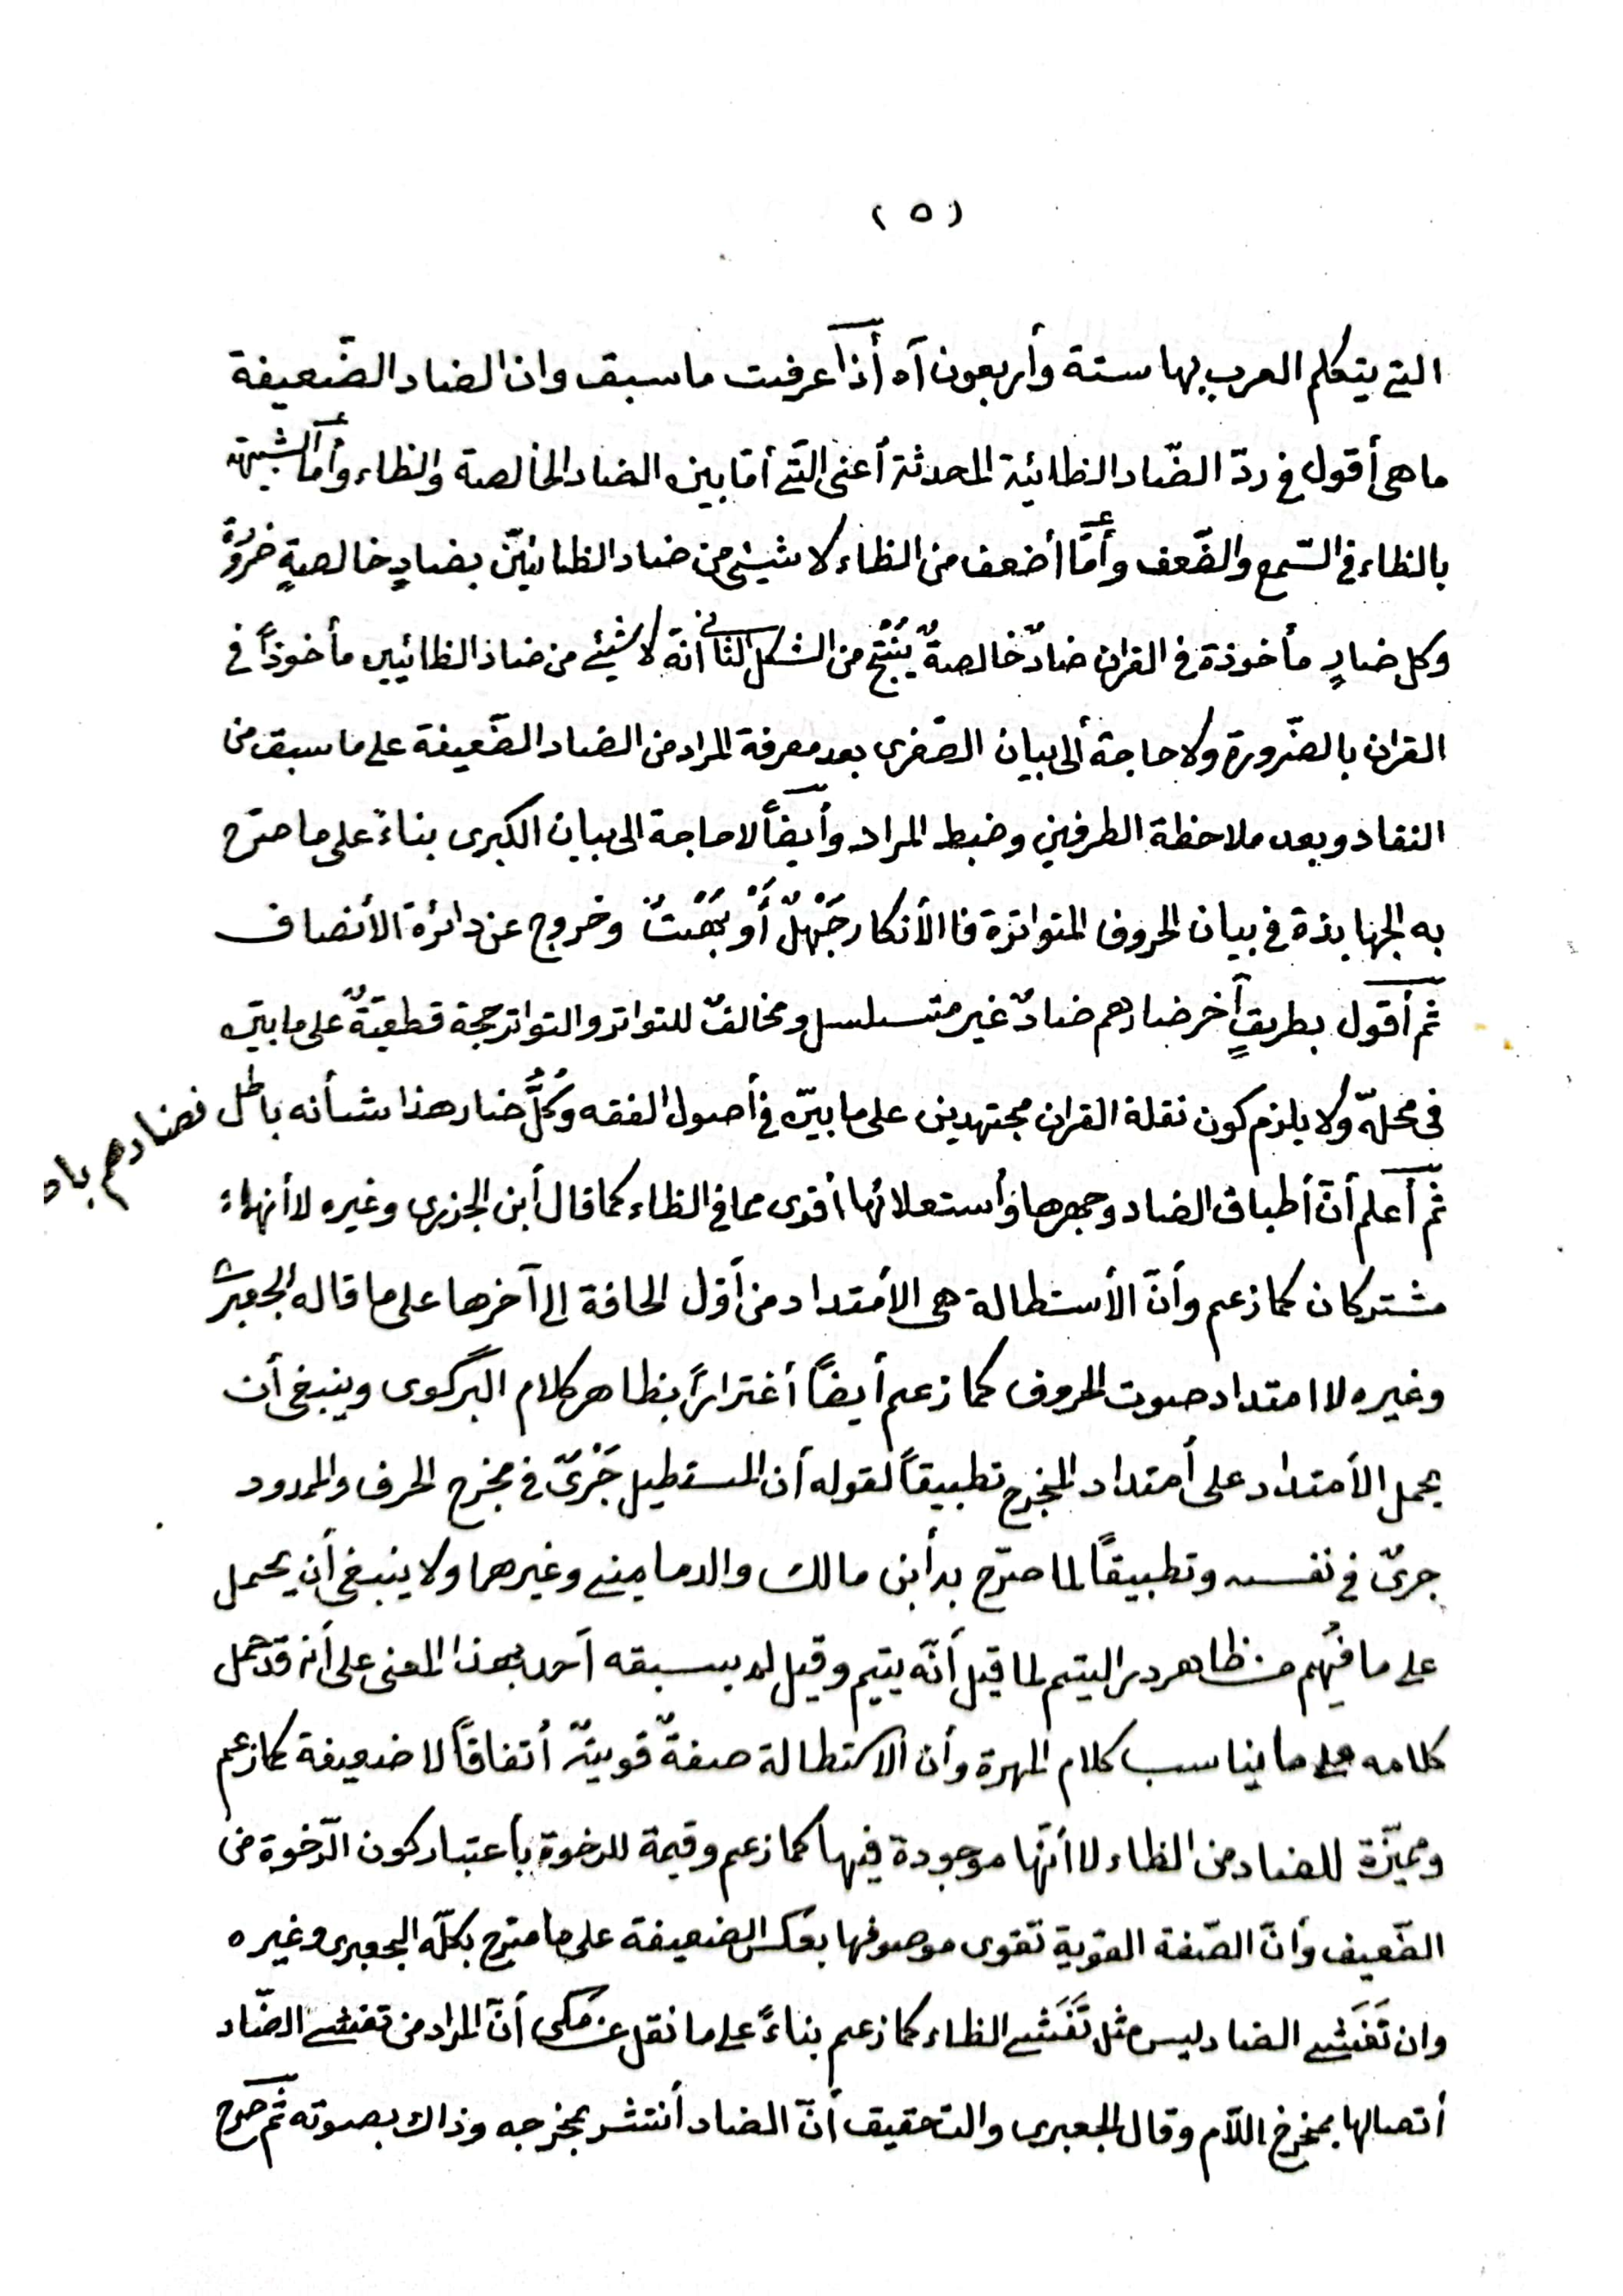 (٥)
التي يتكلم العرب بها ستة وأربعون آه أذا عرفت ما سبق وان الضاد الضّعيفة
ما هى أقول فى ردّ الضّاد الظائية المحدثة أعنى الّتى أمّا بين الضاد الخالصة والظاء وأمّا الشبيهة
بالظاء فى السّمع والضّعف وأمّا أضعف من الظاء لا شيئ من ضاد الظائيّين بضادٍ خالصةٍ ضرورةً
وكل ضادٍ مأخوذة فى القران ضادٌ خالصةٌ يُنْتِجُ من الشكل الثانى أنّه لا شيئ من ضاد الظائيين مأخوذاً فى
القران بالضّرورة ولا حاجة ألى بيان الصّغرى بعد معرفة المراد من الضاد الضّعيفة على ما سبق من
النقاد وبعد ملاحظة الطرفين وضبط المراد وأيضاً لا حاجة الى بيان الكبرى بناءً على ما صرّح
به الجهابذة فى بيان الحروف المتواترة فا الأنكار جَهْلٌ أَوْ بَهْتٌ وخروج عن دائرة الأنصاف
ثم أقول بطريقٍ آخر ضادهم ضادٌ غير متسلسل ومخالفٌ للتواتر والتواتر حجة قطعيةٌ على ما بيّن
فى محلهّ ولا يلزم كون نقلة القران مجتهدين على ما بيّن فى أصول الفقه وكُلُّ ضاد هذا شأنه باطل فضادهم
ثم أعلم أنّ أطباق الضاد وجهرها وأستعلائها أقوى مما فى الظاء كما قال أبن الجزرى وغيره لا أنهما
مشتركان كما زعم وأنّ الأستطالة هى الأمتداد من أوّل الحافة إلى آخرها على ما قاله الجعبرى
وغيره لا امتداد صوت الحروف كما زعم أيضاً أغتراراً بظاهر كلام البرگوى وينبغى أن
يحمل الأمتداد على أمتداد المخرج تطبيقاً لقوله أن المستطيل جَرْىٌ فى مخرج الحرف والممدود
جرىٌ فى نفسه وتطبيقاً لما صرّح به أبن مالك والدمامينى وغيرهما ولا ينبغى أن يحمل
على ما فُهِم من ظاهر در اليتيم لما قيل أنّه يتيم وقيل لم يسبقه أحد بهذا المعنى على أنه قد حمل
كلامه على ما يناسب كلام المهرة وأن الاستطالة صفةٌ قويةٌ أتفاقاً لا ضعيفة كما زعم
ومميّزة للضاد من الظاء لا أنّها موجودة فيها كما زعم وقيمة للرخوة بأعتبار كون الرّخوة من
الضّعيف وأنّ الصّفة القوية تقوى موصوفها بعكس الضعيفة على ما صرّح بكلّه الجعبرى وغيره
وان تَفَشّى الضاد ليس مثل تَفَشّى الظاء كما زعم بناءً على ما نقل عن مَكى أنّ المراد من تفشى الضّاد
أتصالها بمخرج اللّام وقال الجعبرى والتحقيق أنّ الضاد أنتشر بمخرجه وذاك بصوته ثم صرح